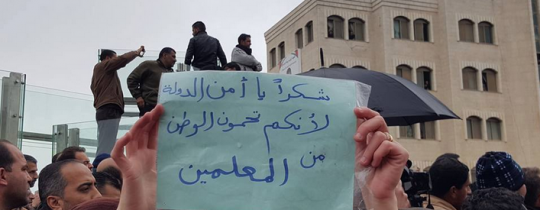 شكراً يا أمن الدولة
لأنكم تحمون الوطن
من المعلمين